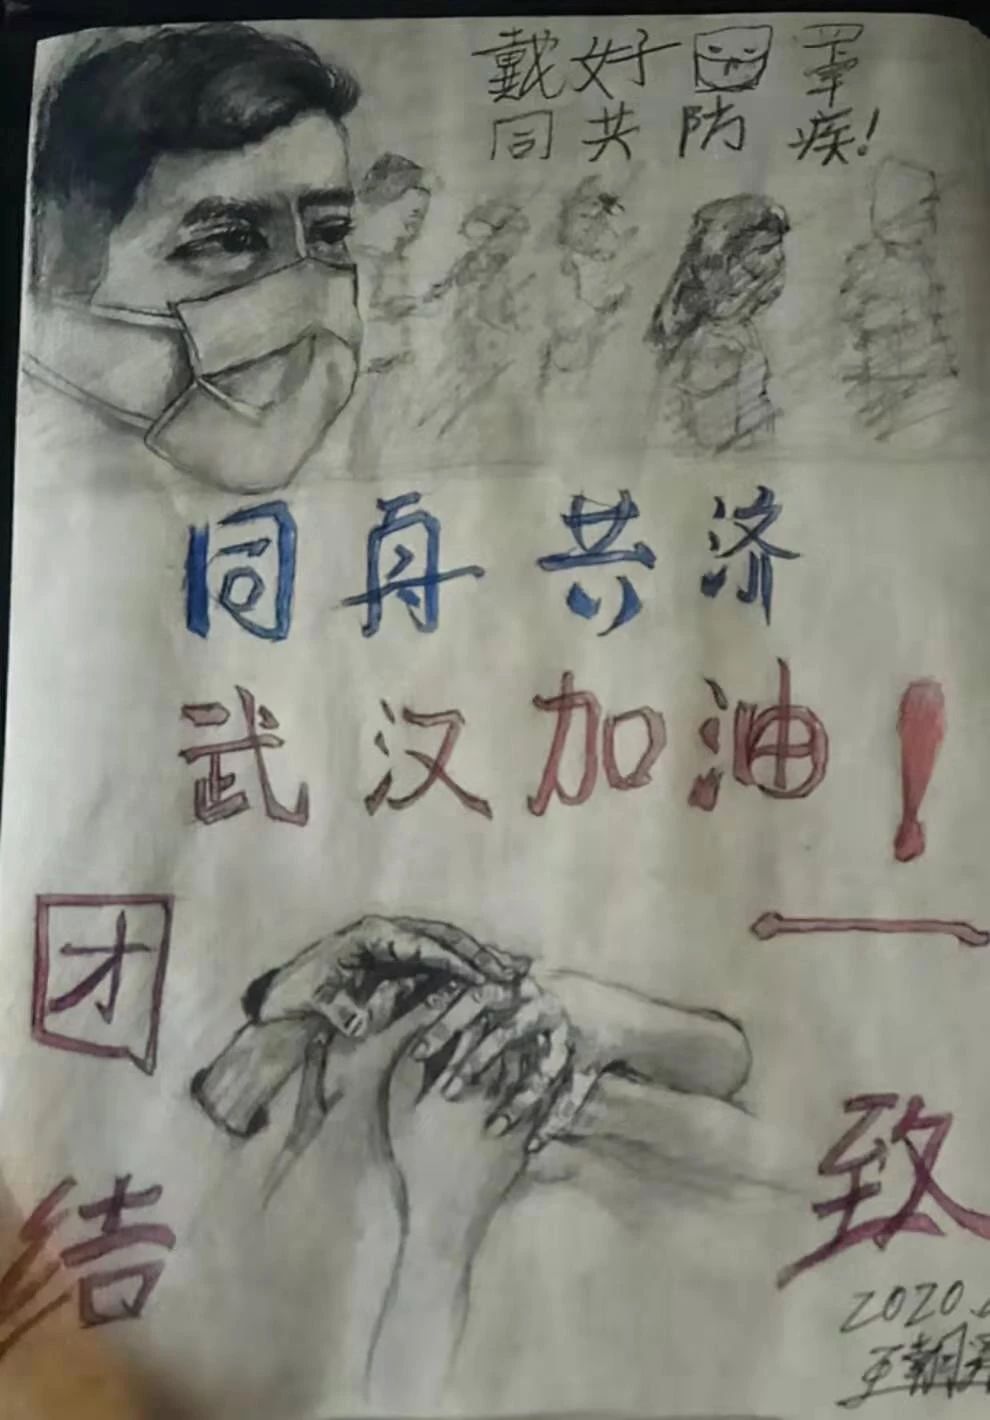 戴好口罩
同共防疾!
同舟共济
武汉加油!
团结
一致
2020.